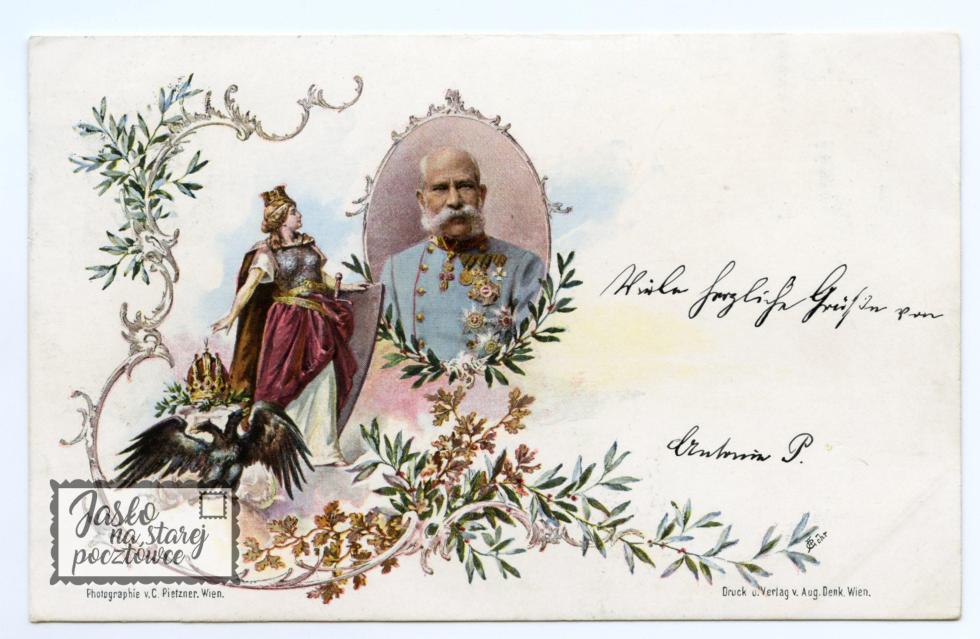 Viele herzliche Grüße von
Antonie P.
Jasło
na starej
pocztówce
Photographie v. C. Pietzner. Wien.
Druck u. Verlag v. Aug. Denk. Wien.